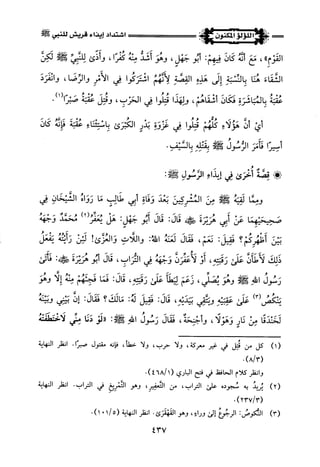 اللؤلؤ المكنون
اشتداد إيذاء قريش للنبي ﷺ
القَوْمِ»، مَعَ أَنَّهُ كَانَ فِيهِمْ: أَبُو جَهْلٍ، وهُوَ أَشَدُّ مِنْهُ كُفْرًا، وأَذًى لِلنَّبِيِّ ﷺ لَكِنِ
الشَّقَاءُ هُنَا بِالنِّسْبَةِ إِلَى هَذِهِ القِصَّةِ لِأَنَّهُمُ اشْتَرَكُوا فِي الأَمْرِ والرِّضَا، وانْفَرَدَ
عُقْبَةُ بِالمُبَاشَرَةِ فَكَانَ أَشْقَاهُمْ، ولِهَذَا قُتِلُوا فِي الحَرْبِ، وقُتِلَ عُقْبَةُ صَبْرًا(١).
أَيْ أَنَّ هَؤُلَاءِ كُلَّهُمْ قُتِلُوا فِي غَزْوَةِ بَدْرٍ الكُبْرَى بِاسْتِثْنَاءِ عُقْبَةَ فَإِنَّهُ كَانَ
أَسِيرًا فَأَمَرَ الرَّسُولُ ﷺ بِقَتْلِهِ بِالسَّيْفِ.
قِصَّةٌ أُخْرَى فِي إِيذَاءِ الرَّسُولِ ﷺ:
ومِمَّا لَقِيَهُ ﷺ مِنَ المُشْرِكِينَ بَعْدَ وَفَاةِ أَبِي طَالِبٍ مَا رَوَاهُ الشَّيْخَانِ فِي
صَحِيحَيْهِمَا عَنْ أَبِي هُرَيْرَةَ ﷺ قَالَ: قَالَ أَبُو جَهْلٍ: هَلْ يُعَفِّرُ(٢) مُحَمَّدٌ وَجْهَهُ
بَيْنَ أَظْهُرِكُمْ؟ فَقِيلَ: نَعَمْ، فَقَالَ لَعَنَهُ اللهُ: واللَّاتِ والعُزَّى! لَئِنْ رَأَيْتُهُ يَفْعَلُ
ذَلِكَ لَأَطَأَنَّ عَلَى رَقَبَتِهِ، أَوْ لَأُعَفِّرَنَّ وَجْهَهُ فِي التُّرَابِ، قَالَ أَبُو هُرَيْرَةَ ﷺ: فَأَتَى
رَسُولَ اللهِ ﷺ وهُوَ يُصَلِّي، زَعَمَ لِيَطَأَ عَلَى رَقَبَتِهِ، قَالَ: فَمَا فَجِئَهُمْ مِنْهُ إِلَّا وهُوَ
يَنْكُصُ(٣) عَلَى عَقِبَيْهِ ويَتَّقِي بِيَدَيْهِ، قَالَ: فَقِيلَ لَهُ: مَالَكَ؟ فَقَالَ: إِنَّ بَيْنِي وبَيْنَهُ
لَخَنْدَقًا مِنْ نَارٍ وهَوْلًا، وأَجْنِحَةً، فَقَالَ رَسُولُ اللهِ ﷺ: «لَوْ دَنَا مِنِّي لَاخْتَطَفَتْهُ
(١) كل من قُتِل في غير معركة، ولا حرب، ولا خطأ، فإنه مقتول صبرًا. انظر النهاية
(٨/٣)
وانظر كلام الحافظ في فتح الباري (٤٦٨/١).
(٢) يُريد به سُجوده على التراب، من التَّعْفِيرِ، وهو التَّمْرِيغُ في التراب. انظر النهاية
(٢٣٧/٣).
(٣) النُّكُوصُ: الرجوعُ إلى وراءٍ، وهو القَهْقَرَى. انظر النهاية (١٠١/٥).
٤٣٧